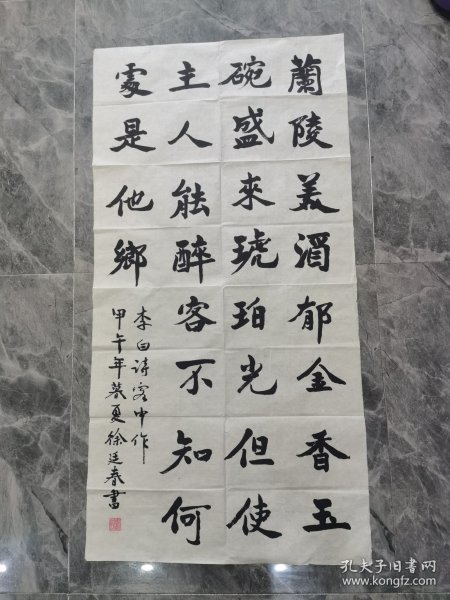 蘭陵美酒郁金香五
碗盛來琥珀光但使
主人能醉客不知何
處是他鄉
李白诗客中作
甲午年暮夏徐廷春書
孔夫子旧书网
www.kongfz.com